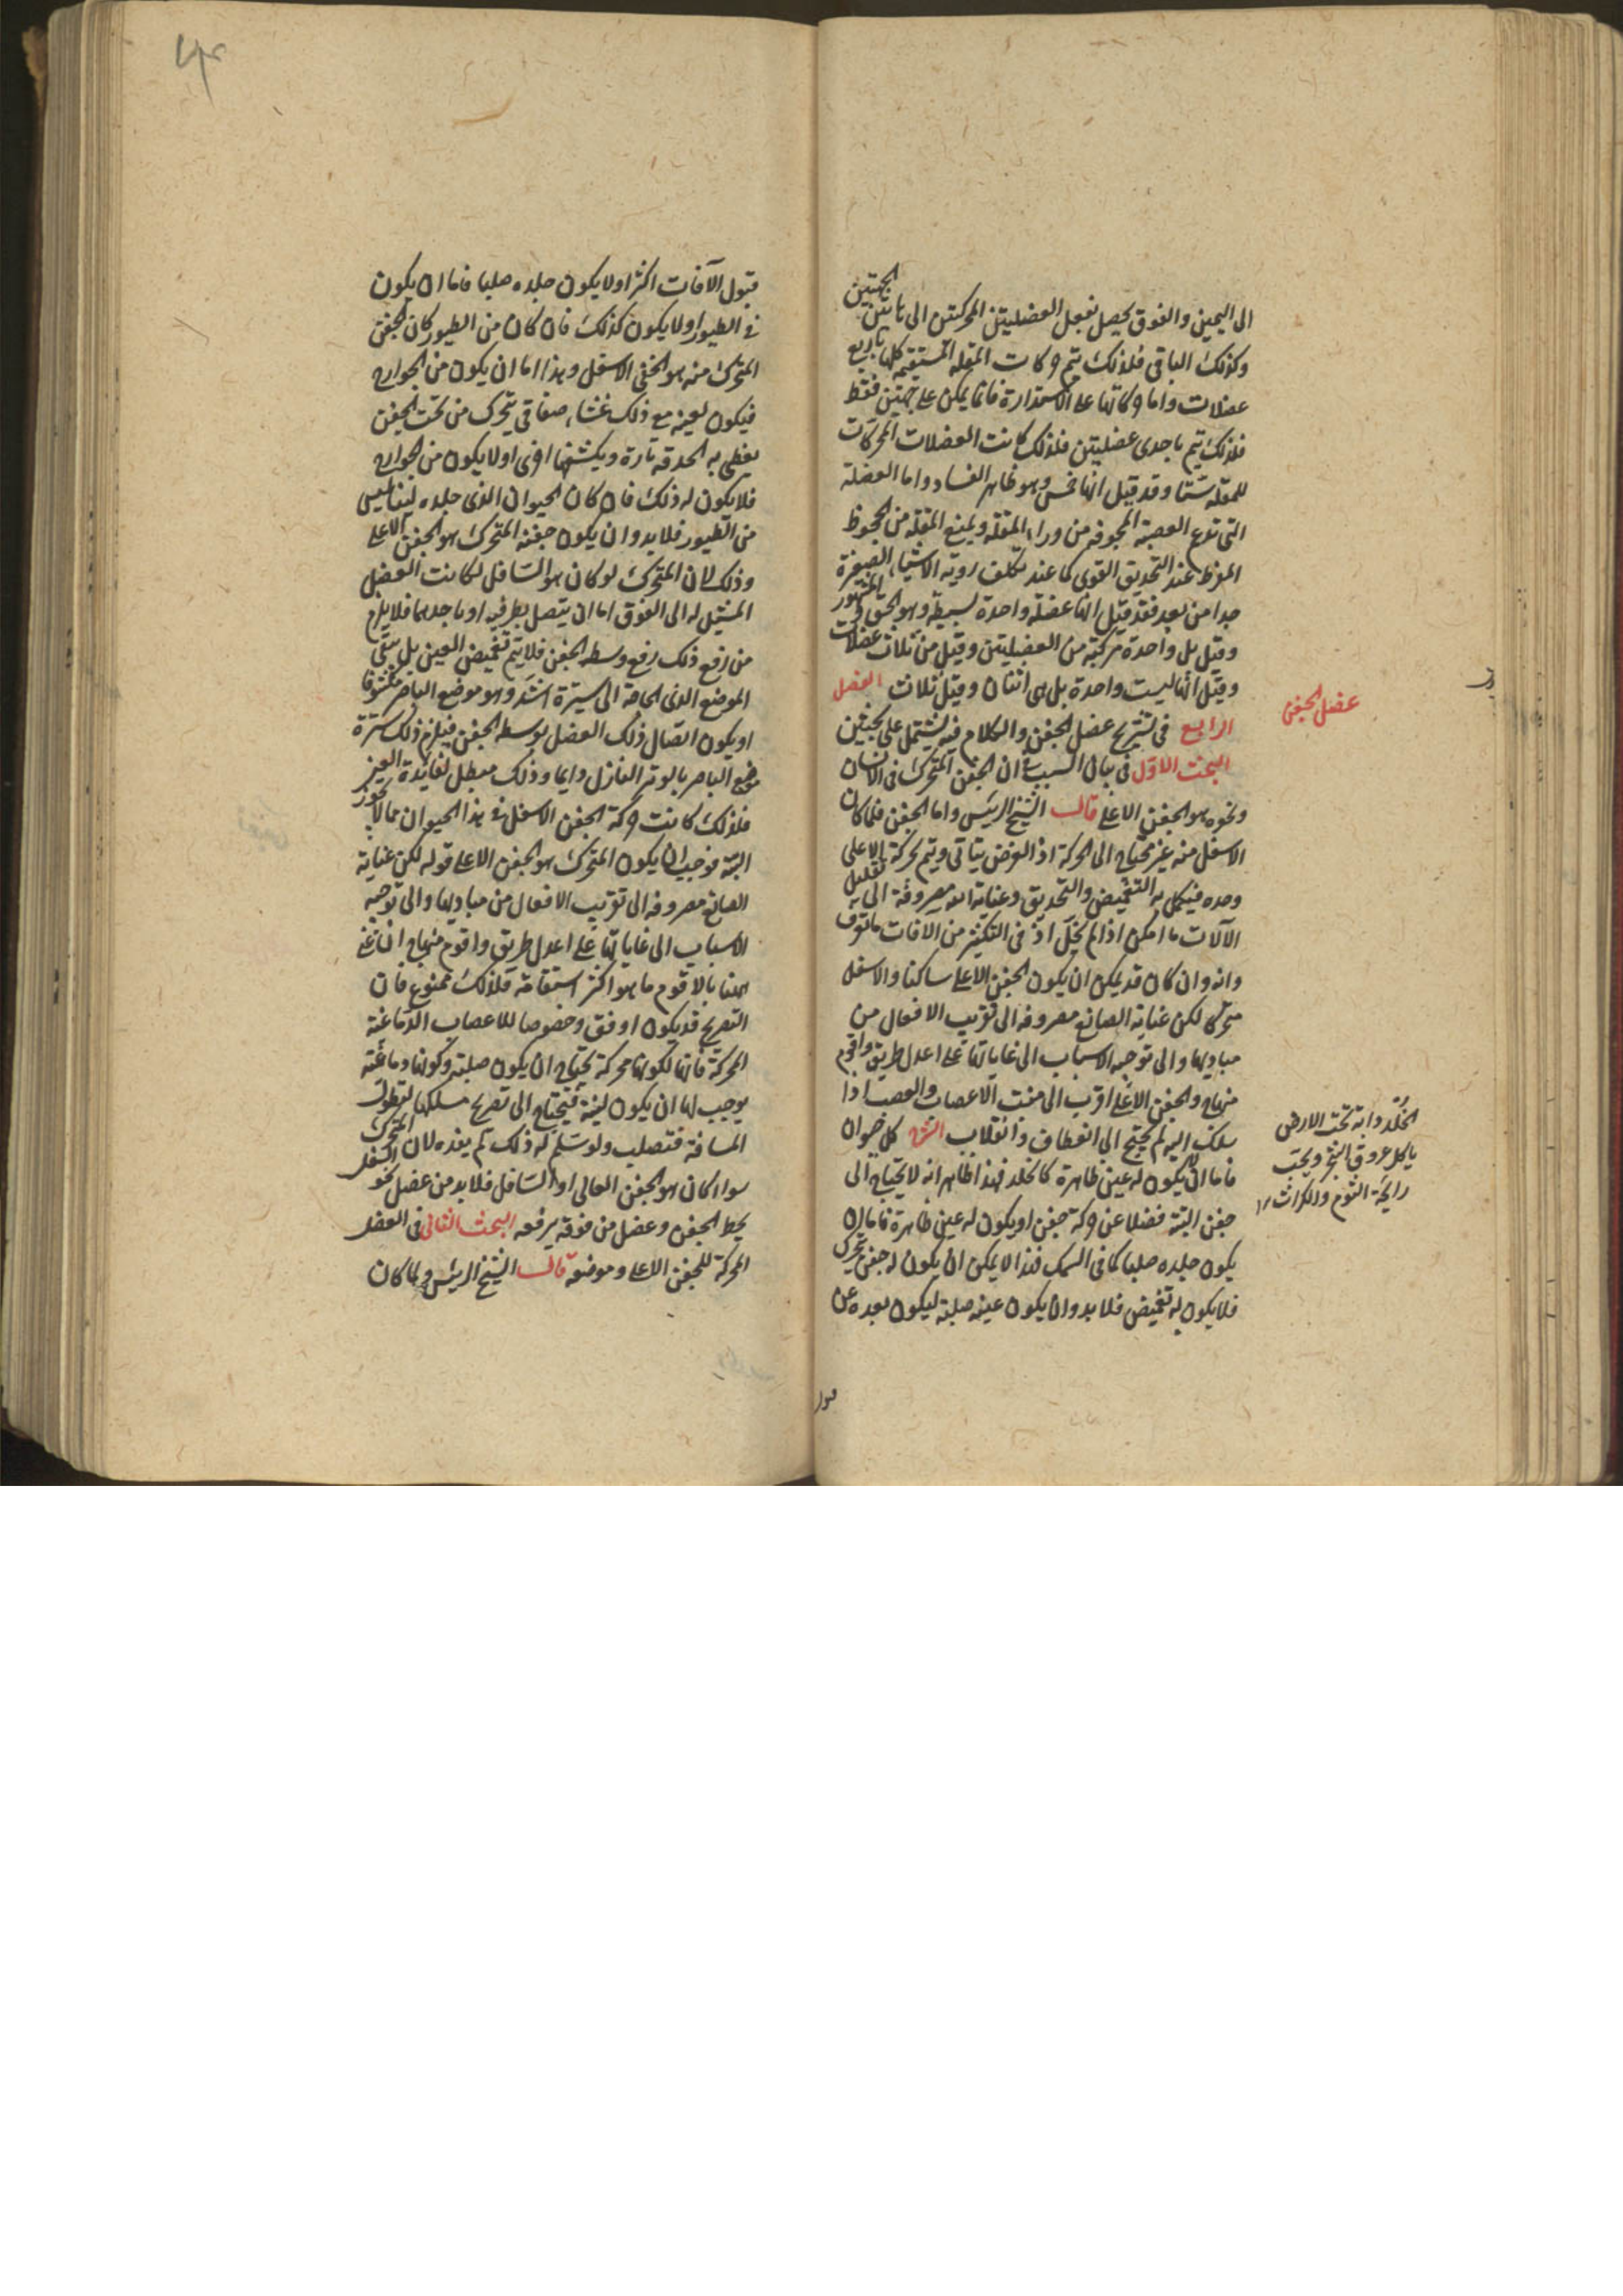 الى اليمين والفوق يحصل بفعل العضليتين المحركتين الى هاتين الجهتين
وكذلك الباقى فلذلك يتم حركات المقلة المستقيمة كلها باربع
عضلات واما حركاتها على الاستدارة فانما يمكن على جهتين فقط
فلذلك يتم باحدى عضليتين فلذلك كانت العضلات المحركات
للمقلة ستا وقد قيل انها خمس وهو ظاهر الفساد واما العضلة
التى تدعم العصبة المجوفه من وراء المقلة ويمنع المقلة من الجحوظ
المفرط عند التحديق القوى كما عند تكلف روية الاشياء الصغيرة
جدا من بعد فقد قيل انها عضلة واحدة بسيطة وهو الحق والمشهور
وقيل بل واحدة مركبة من العضليتين وقيل من ثلاث عضلات
وقيل انها ليست واحدة بل هى اثنتان وقيل ثلاث الفصل
الرابع فى تشريح عضل الجفن والكلام فيه يشتمل على بحثين
البحث الاول فى بيان السبب فى ان الجفن المتحرك فى الانسان
ونحوه هو الجفن الاعلى قال الشيخ الرئيس واما الجفن فلما كان
الاسفل منه غير محتاج الى الحركة اذ الغرض يتاتى ويتم بحركة الاعلى
وحده فيكمل به التغميض والتحديق وعناية الله مصروفة الى تقليل
الآلات ما امكن اذا لم يخل اذ فى التكثير من الافات ما تعرف
وانه وان كان قد يمكن ان يكون الجفن الاعلى ساكنا والاسفل
متحركا لكن عناية الصانع مصروفه الى تقريب الافعال من
مباديها والى توجيه الاسباب الى غاياتها على اعدل طريق واقوم
منهاج والجفن الاعلى اقرب الى منبت الاعصاب والعصب اذا
سلك اليه لم يحتج الى انعطاف وانقلاب الشرح كل حيوان
فاما ان لا يكون له عين ظاهرة كالخلد فهذا ظاهر انه لا يحتاج الى
جفن البتة فضلا عن حركة جفن او يكون له عين ظاهرة فاما ان
يكون جلده صلبا كما فى السمك فهذا لا يمكن ان يكون له جفن يتحرك
فلا يكون له تغميض فلا بد وان يكون عينه صلبة ليكون بعده عن
عضل الجفن
الخلد دابة تحت الارض
ياكل عروق الشجر ويحب
رايحة الثوم والكراث ١٢
قبول
قبول الآفات اكثر او لا يكون جلده صلبا فاما ان يكون
فى الطيور او لا يكون كذلك فان كان من الطيور كان الجفن
المتحرك منه هو الجفن الاسفل وهذا اما ان يكون من الجوارح
فيكون لعينه مع ذلك غشاء صفاقى يتحرك من تحت الجفن
يغطى به الحدقه تارة ويكشفها اخرى او لا يكون من الجوارح
فلا يكون له ذلك فان كان الحيوان الذى جلده لين ليس
من الطيور فلا بد وان يكون جفنه المتحرك هو الجفن الاعلى
وذلك لان المتحرك لو كان هو السافل لكانت العضل
المشيل له الى الفوق اما ان يتصل بطرفيه او باحدهما فلا يلزم
من رفع ذلك رفع وسط الجفن فلا يتم تغميض العين بل يبقى
الموضع الذى الحاجة الى سترة اشد وهو موضع الباصر مكشوفا
او يكون اتصال ذلك العضل بوسط الجفن فيلزم ذلك سترة
موضع الباصر بالوتر النازل دايما وذلك مبطل لفائدة العين
فلذلك كانت حركة الجفن الاسفل فى هذا الحيوان مما لا يجوز
البتة فوجب ان يكون المتحرك هو الجفن الاعلى قوله لكن عناية
الصانع مصروفه الى تقريب الافعال من مباديها والى توجيه
الاسباب الى غاياتها على اعدل طريق واقوم منهاج ان عنى
ههنا بالاقوم ما هو اكثر استقامة فلذلك ممنوع فان
التعريج قد يكون اوفق وخصوصا للاعصاب الدماغية
المحركة فانها لكونها محركة تحتاج ان يكون صلبة وكونها دماغية
يوجب لها ان يكون لينة فيحتاج الى تعريج مسلكها لتطول
المسافة فتصلب ولو سلم له ذلك لم يفده لان المتحرك
سواء كان هو الجفن العالى او السافل فلا بد من عضل نحو السفل
يحط الجفن وعضل من فوقه يرفعه البحث الثانى فى العضل
المحركة للجفن الاعلى وموضعه قال الشيخ الرئيس ولما كان